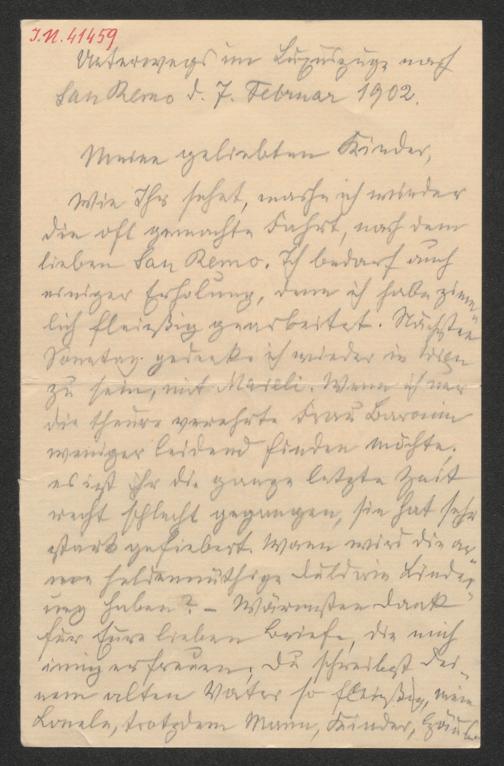 I.N. 41459
Unterwegs im Luxuszuge nach
San Remo d. 7. Februar 1902.
Meine geliebten Kinder,
Wie Ihr sehet, mache ich wieder
die oft gemachte Fahrt, nach dem
lieben San Remo. Ich bedarf auch
einiger Erholung, denn ich habe ziem¬
lich fleißig gearbeitet. Nächsten
Sonntag gedenke ich wieder in Wien
zu sein, mit Meixli. Wenn ich nur
die theure verehrte Frau Baronin
weniger leidend finden möchte.
es ist ihr die ganze letzte Zeit
recht schlecht gegangen, sie hat sehr
stark gefiebert. Wann wird die ar¬
me heldenmüthige Dulderin Linder¬
ung haben? – Wärmsten Dank
für Eure lieben Briefe, die mich
innig erfreuen; Du schreibst Dei¬
nem alten Vater so fleißig, mein
trotzdem Mann, Kinder,